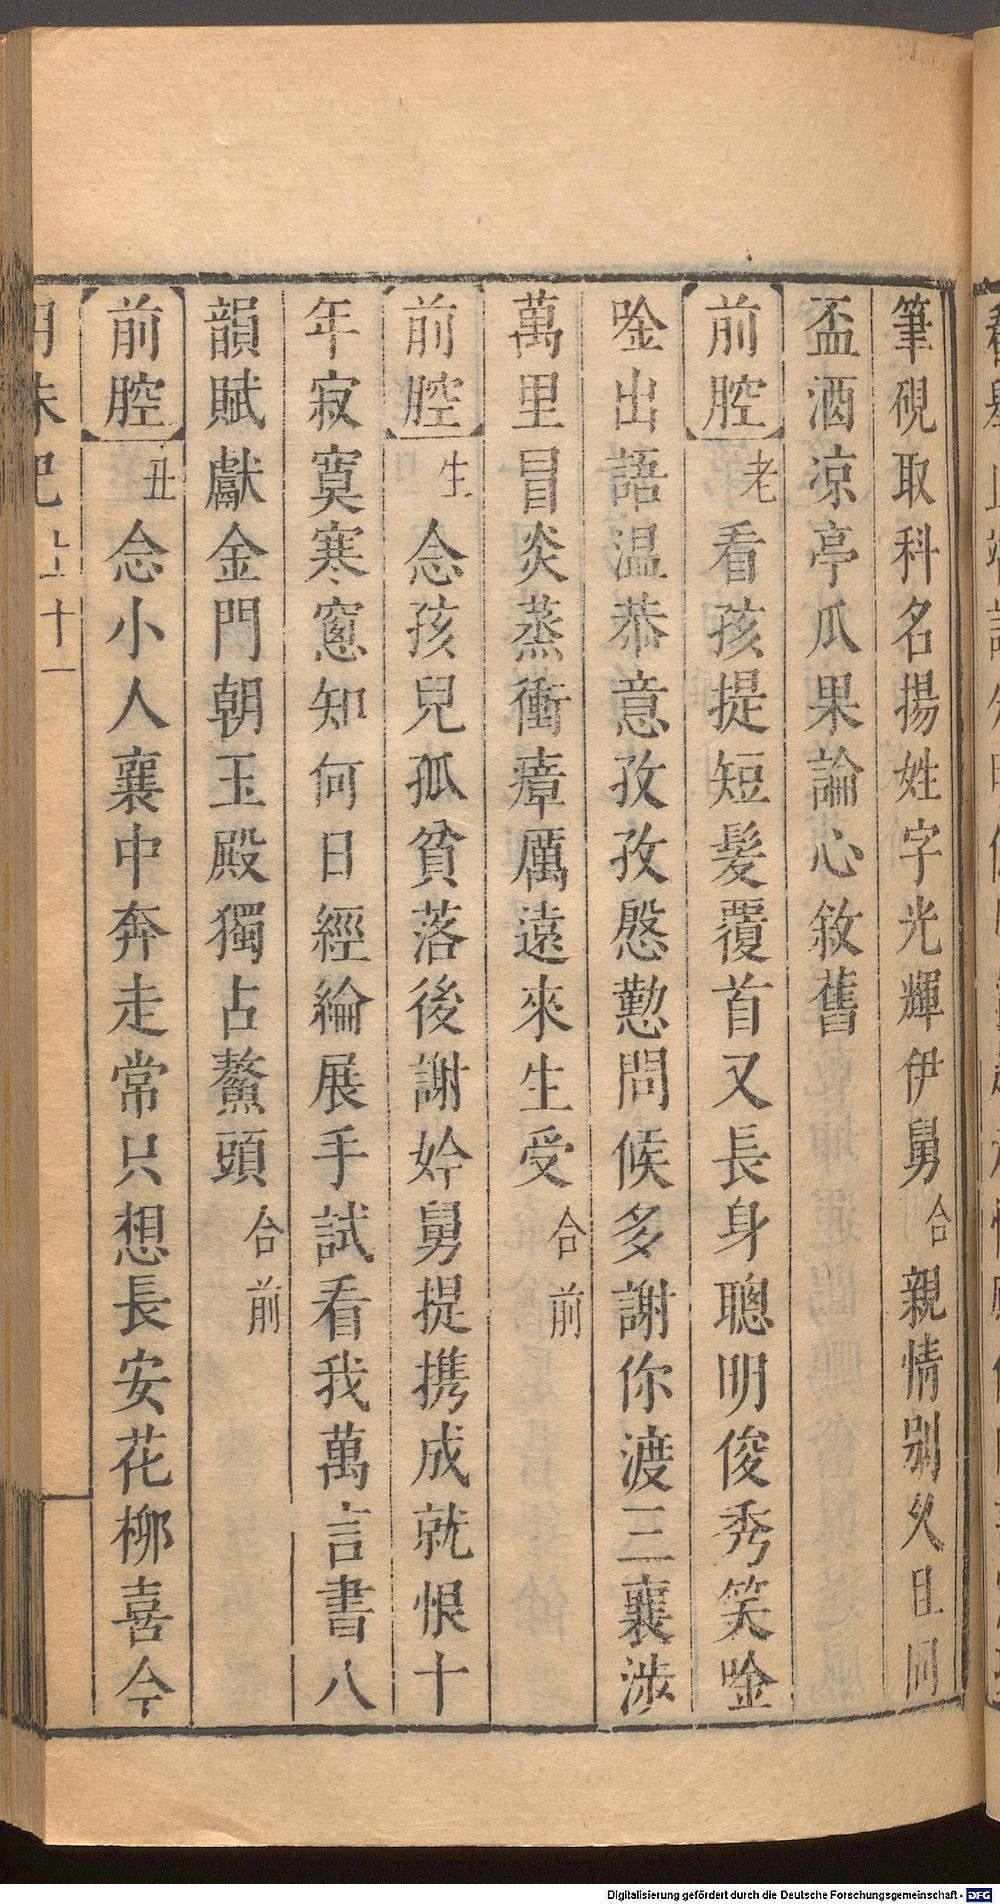 筆硯取科名揚姓字光輝伊舅合親情别久且同
盃酒凉亭瓜果論心敘舊
前腔老看孩提短髮覆首又長身聰明俊秀笑唫
唫出語温恭意孜孜慇懃問候多謝你渡三襄涉
萬里冒炎蒸衝瘴厲遠來生受合前
前腔生念孩兒孤貧落後謝妗舅提携成就恨十
年寂寞寒窻知何日經綸展手試看我萬言書八
韻賦獻金門朝玉殿獨占鰲頭合前
前腔丑念小人襄中奔走常只想長安花柳喜今
上十一
Digitalisierung gefördert durch die Deutsche Forschungsgemeinschaft - DFG